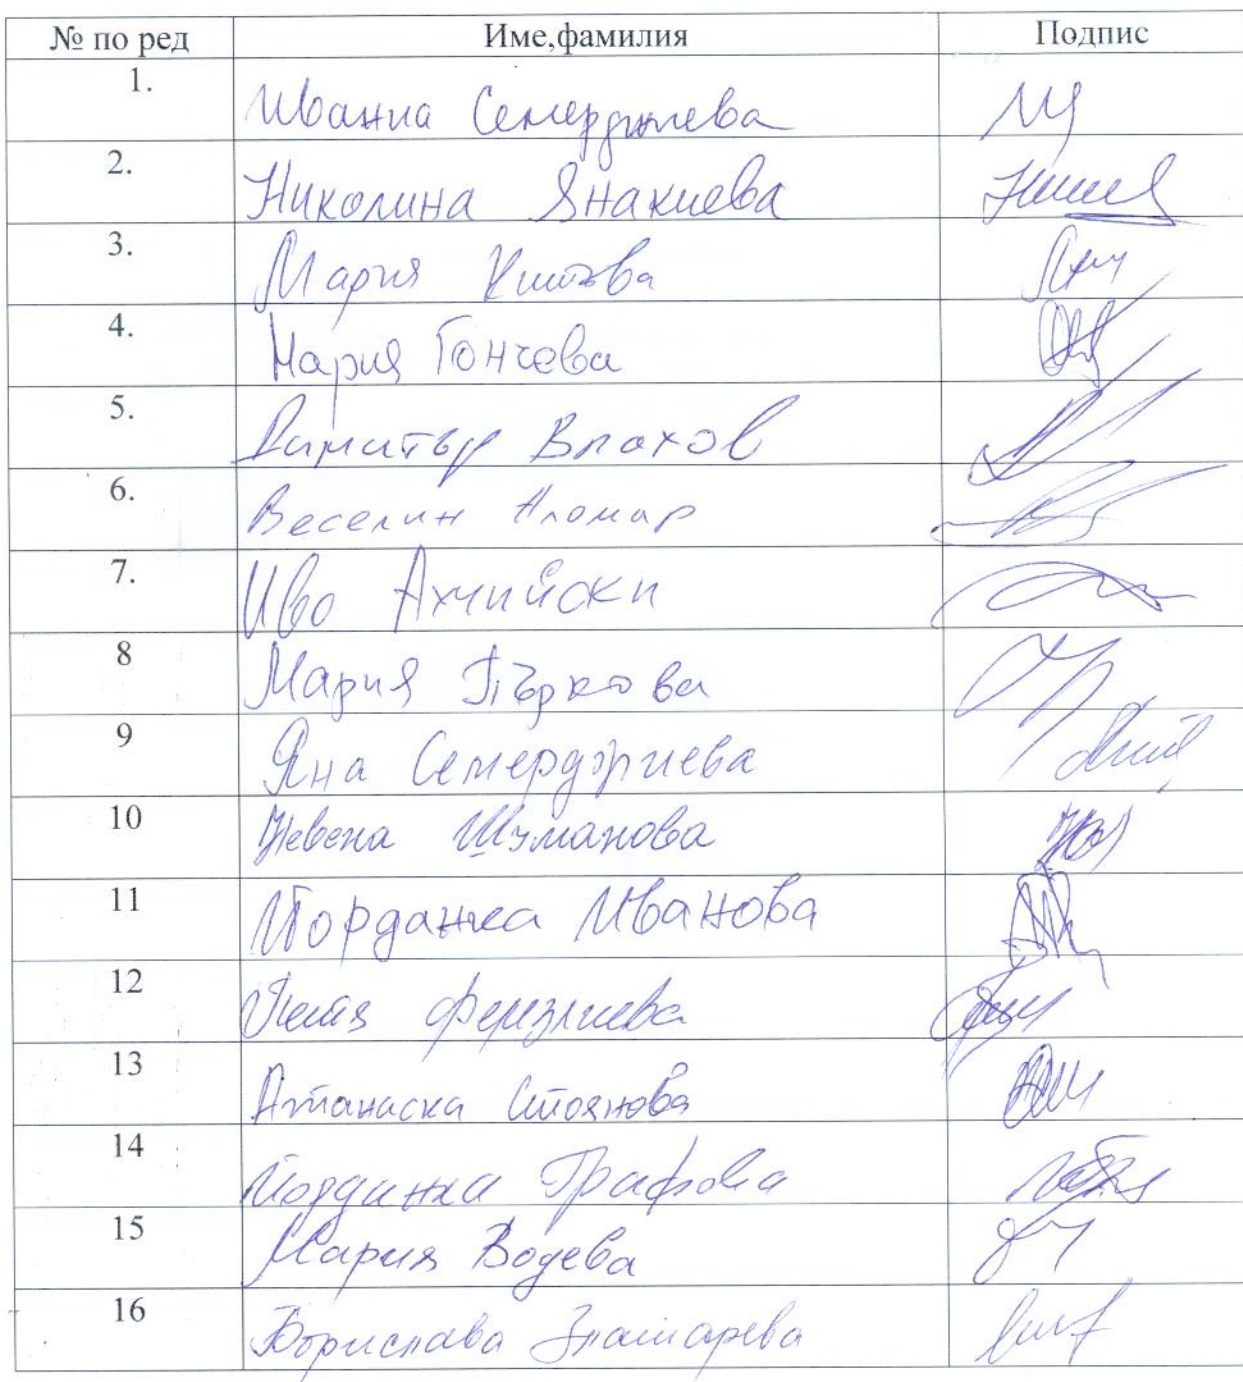 № по ред Име,фамилия Подпис
1. Иванна Семерджиева
2. Николина Янакиева
3. Мария Китова
4. Мария Гончева
5. Димитър Влахов
6. Веселин Аломар
7. Иво Ахчийски
8 Мария Пъркова
9 Яна Семерджиева
10 Невена Шуманова
11 Йорданка Иванова
12 Петя Ферезлиева
13 Атанаска Стоянова
14 Йорданка Графова
15 Мария Водева
16 Борислава Златарева